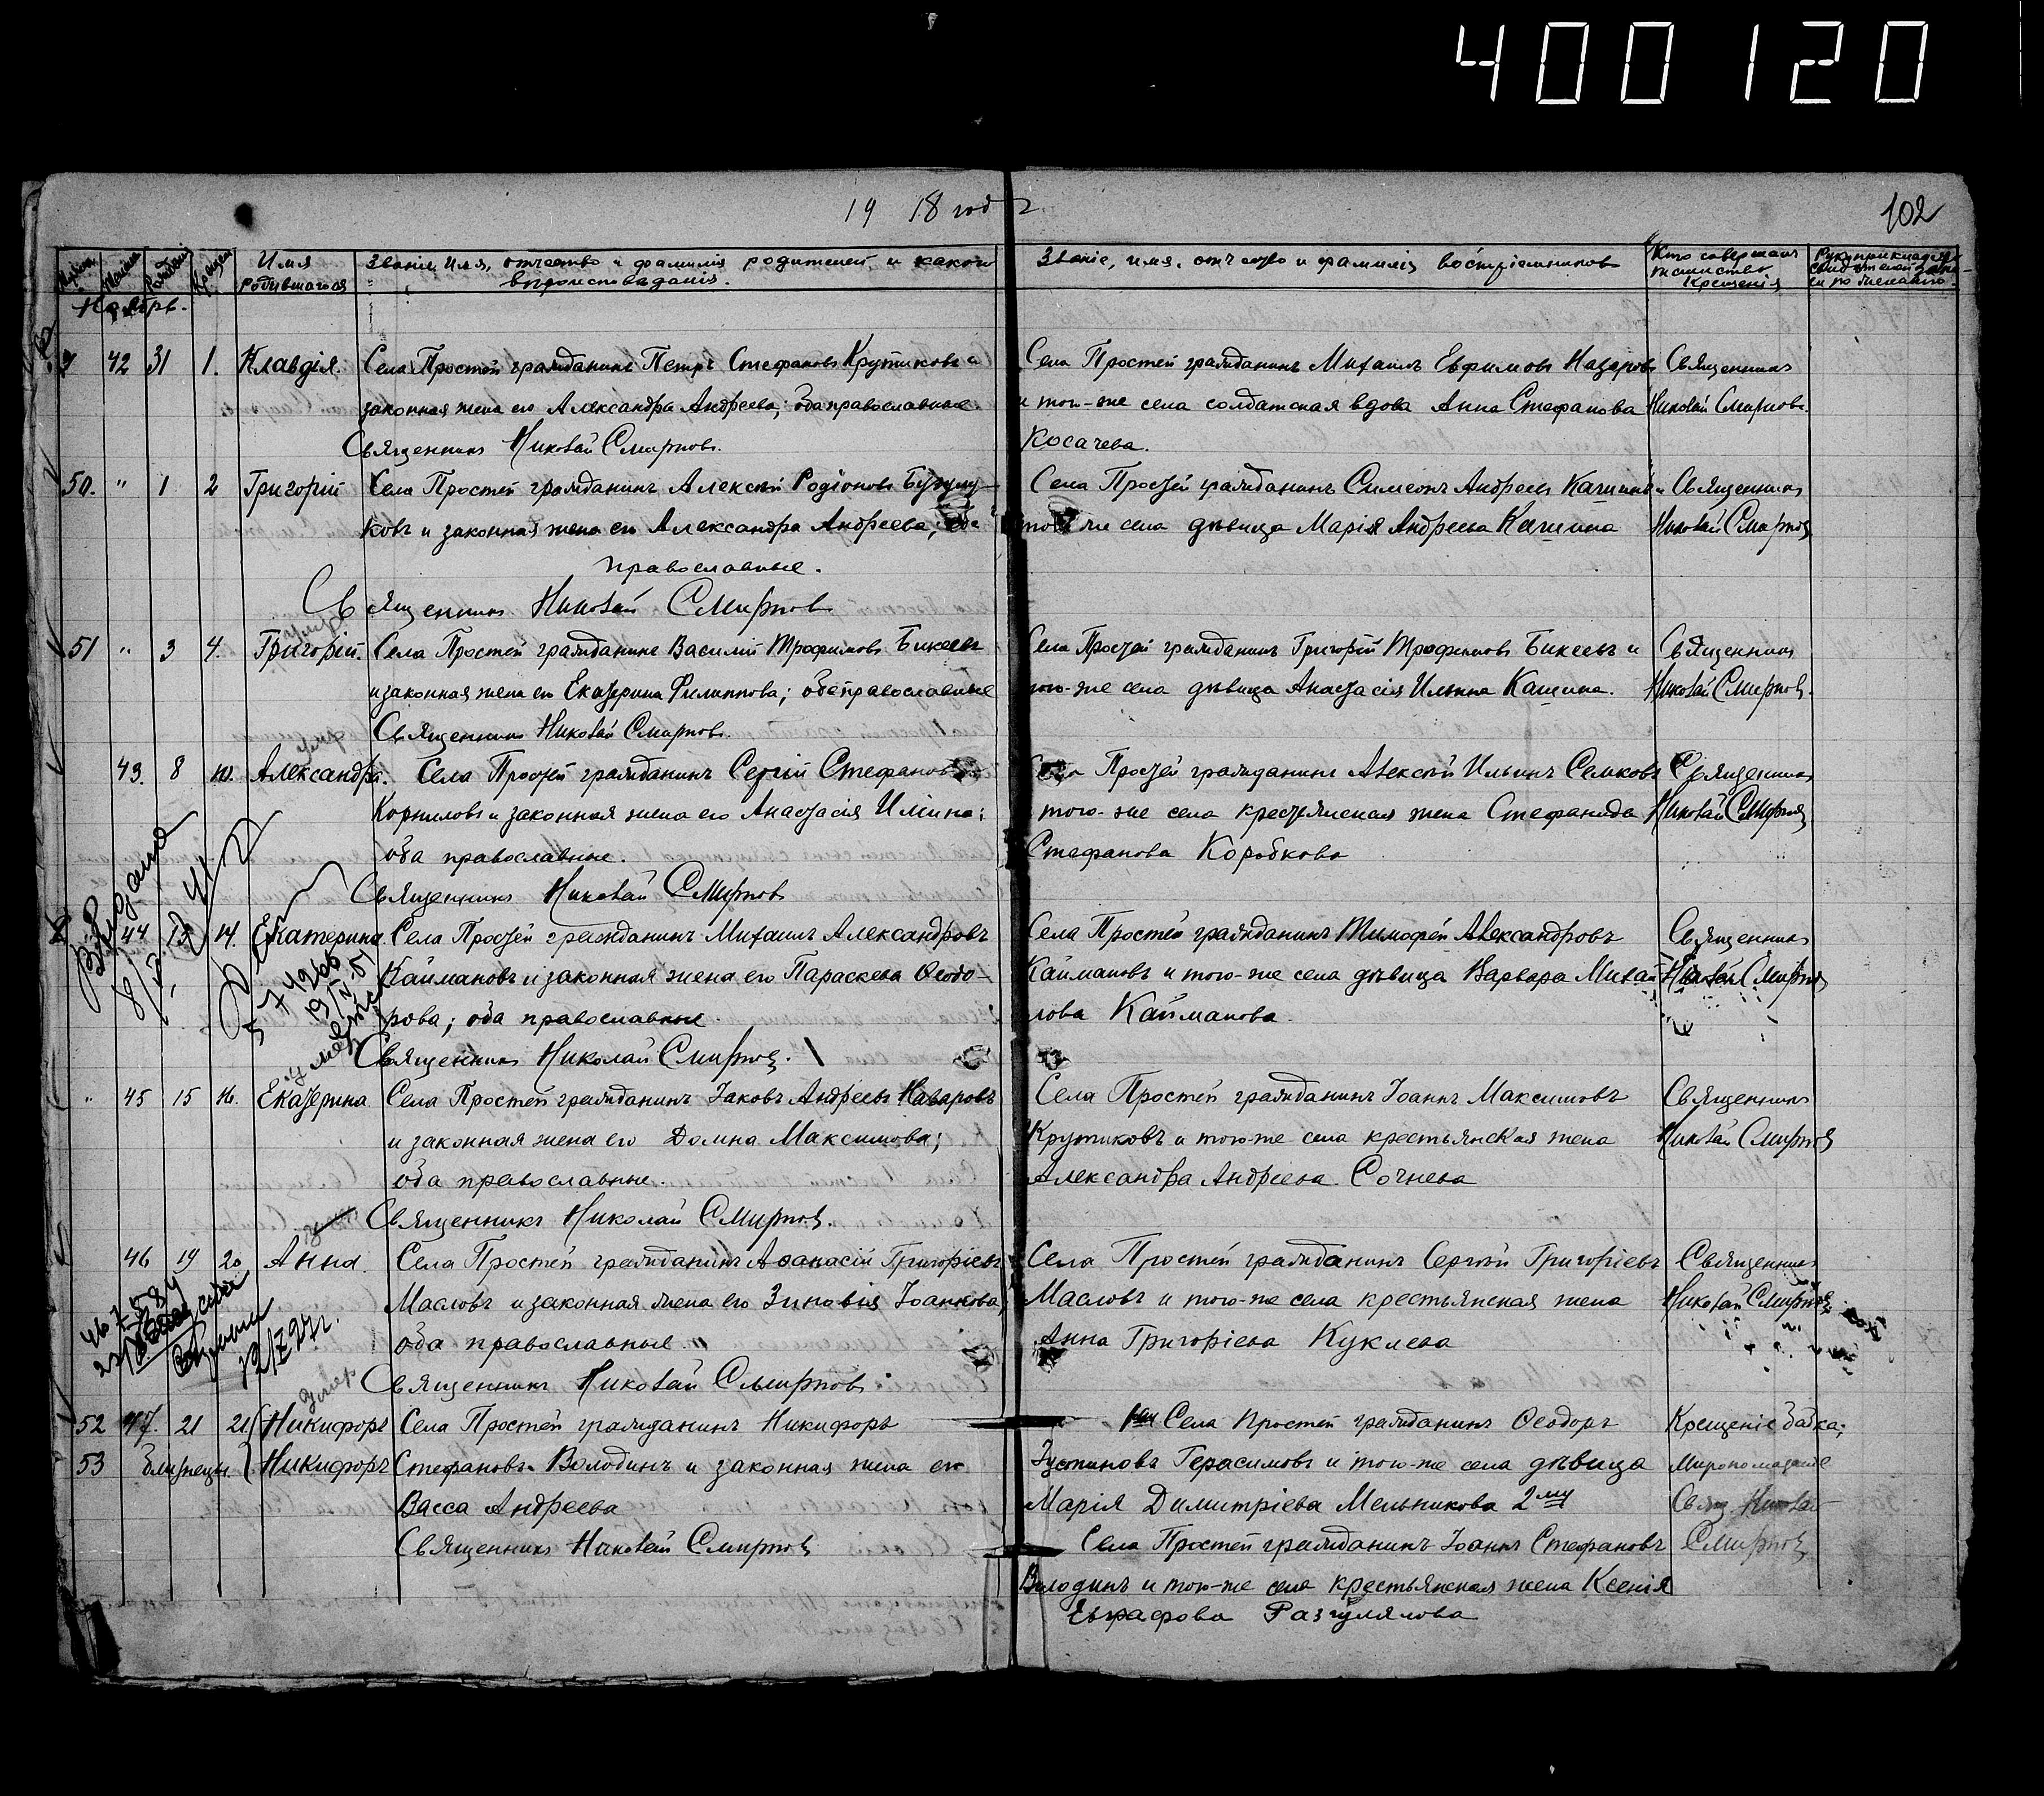 400120
1918 годъ
102
Имя родившагося
Званіе, имя, отчество и фамилія родителей, и какого вѣроисповѣданія.
Званіе, имя, отчество и фамилія воспріемниковъ
Кто совершалъ таинство крещенія
Ноябрь.
42 31 1. Клавдія. Села Простей гражданинъ Петръ Стефановъ Крутиковъ и
законная жена его Александра Андреева; оба православные.
Священникъ Николай Смирновъ.
Села Простей гражданинъ Михаилъ Евфимовъ Назаровъ
и того-же села солдатская вдова Анна Стефанова
Косачева.
Священникъ
Николай Смирновъ.
50. " 1 2 Григорій Села Простей гражданинъ Алексѣй Родіоновъ
ковъ и законная жена его Александра Андреева; оба
православные.
Священникъ Николай Смирновъ
Села Простей гражданинъ Симеонъ Андреевъ Кашинъ и
того же села дѣвица Марія Андреева Кашина
Священникъ
Николай Смирновъ
51 " 3 4. Григорій. Села Простей гражданинъ Василій Трофимовъ Бикеевъ
и законная жена его Екатерина Филиппова; оба православные
Священникъ Николай Смирновъ.
умер
Села Простей гражданинъ Григорій Трофимовъ Бикеевъ и
того-же села дѣвица Анастасія Ильина Кашина.
Священникъ
Николай Смирновъ.
умер
43. 8 10. Александра. Села Простей гражданинъ Сергій Стефановъ
Корниловъ и законная жена его Анастасія Ильина;
оба православные.
Священникъ Николай Смирновъ
Села Простей гражданинъ Алексѣй Ильинъ Семковъ
того-же села крестьянская жена Стефанида
Стефанова Коробкова
Священникъ
Николай Смирновъ
44 13 14. Екатерина. Села Простей гражданинъ Михаилъ Александровъ
Каймановъ и законная жена его Параскева Ѳеодо-
рова; оба православные.
Священникъ Николай Смирновъ.
Села Простей гражданинъ Тимофей Александровъ
Каймановъ и того-же села дѣвица Варвара Михай-
лова Кайманова.
Священникъ
Николай Смирновъ
" 45 15 16. Екатерина Села Простей гражданинъ Іаковъ Андреевъ Назаровъ
и законная жена его Домна Максимова;
оба православные.
Священникъ Николай Смирновъ.
Села Простей гражданинъ Іоаннъ Максимовъ
Крутиковъ и того-же села крестьянская жена
Александра Андреева Сочнева
Священникъ
Николай Смирновъ
46 19 20 Анна. Села Простей гражданинъ Аѳанасій Григорьевъ
Масловъ и законная жена его Зиновія Іоаннова,
оба православные.
Священникъ Николай Смирновъ
Села Простей гражданинъ Сергѣй Григоріевъ
Масловъ и того-же села крестьянская жена
Анна Григоріева Куклева
Священникъ
Николай Смирновъ
умер
52 47. 21 21. Никифоръ Села Простей гражданинъ Никифоръ
53 близнецы Никифоръ Стефановъ Володинъ и законная жена его
Васса Андреева
Священникъ Николай Смирновъ
Села Простей гражданинъ Ѳеодоръ
Іустиновъ Герасимовъ и того-же села дѣвица
Марія Димитріева Мельникова 2му
Села Простей гражданинъ Іоаннъ Стефановъ
Володинъ и того-же села крестьянская жена Ксенія
Евграфова Разгулялова
Крещеніе бабка;
Миропомазаніе
Свящ. Николай
Смирновъ